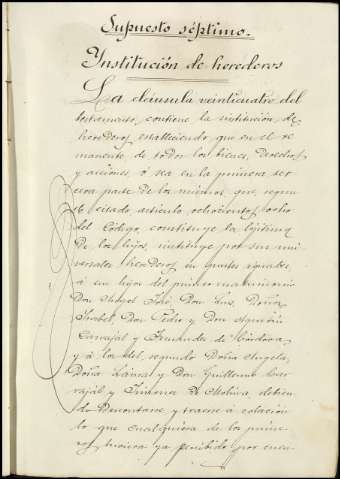 Supuesto séptimo.
Institución de herederos
La cláusula veinticuatro del
testamento, contiene la institución de
herederos, estableciendo, que en el re
manente de todos los bienes, derechos
y acciones, ó sea en la primera ter
cera parte de los mismos que, segun
el citado artículo ochocientos ocho
del Código, constituye la legítima
de los hijos, instituye por sus uni
versales herederos en partes iguales,
á sus hijos del primer matrimonio
Don Angel José, Don Luis, Doña
Isabel, Don Pedro y Don Agustín
Carvajal y Fernandez de Córdova
y á los del segundo Doña Angela,
Doña y Don Guillermo Car
vajál y Jimenez de Molina, debien
do descontarse y traerse á colación
lo que cualquiera de los prime
ros hubiera ya percibido por cuen